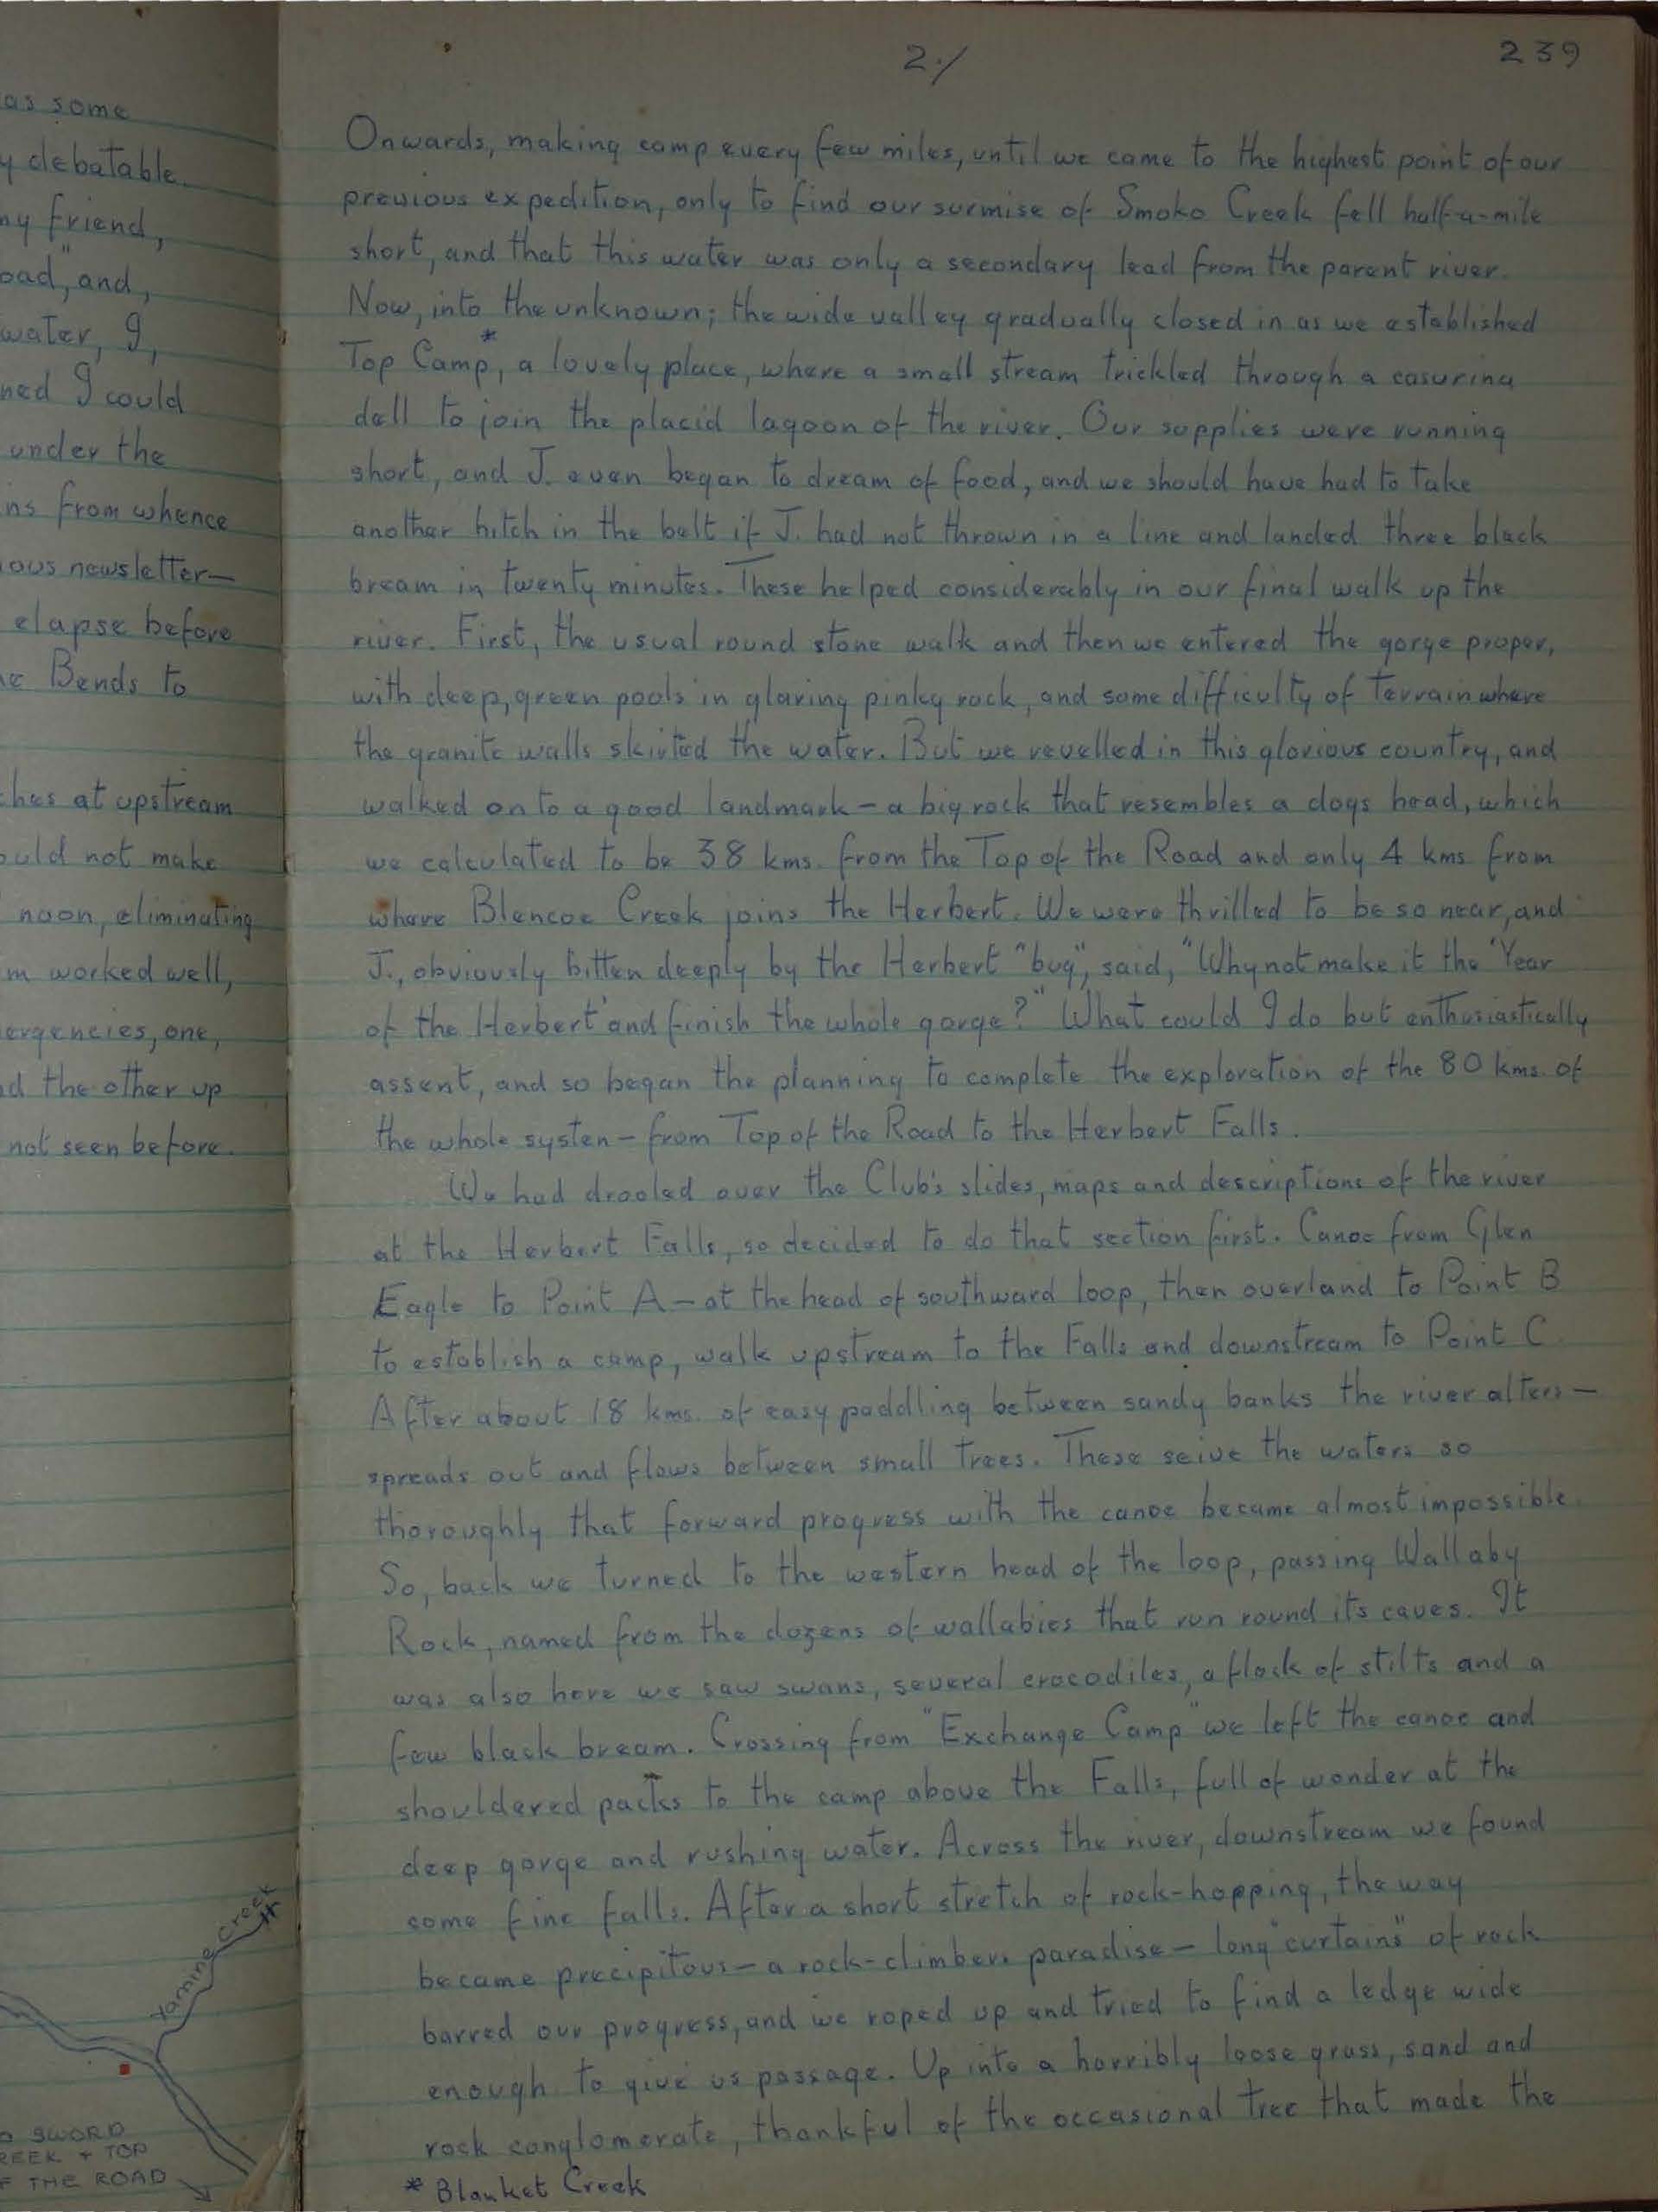 as some
y debatable.
ny friend,
oad", and,
water, I,
ned I could
under the
ns from whence
ous newsletter—
elapse before
e Bends to
ches at upstream
ould not make
noon, eliminating
m worked well,
ergencies, one,
d the other up
not seen before.
Yamine Creek
O SWORD
REEK + TOP
F THE ROAD
2./
239
Onwards, making camp every few miles, until we came to the highest point of our
previous expedition, only to find our surmise of Smoko Creek fell half-a-mile
short, and that this water was only a secondary lead from the parent river.
Now, into the unknown; the wide valley gradually closed in as we established
Top Camp*, a lovely place, where a small stream trickled through a casurina
dell to join the placid lagoon of the river. Our supplies were running
short, and J. even began to dream of food, and we should have had to take
another hitch in the belt if J. had not thrown in a line and landed three black
bream in twenty minutes. These helped considerably in our final walk up the
river. First, the usual round stone walk and then we entered the gorge proper,
with deep, green pools in glaring pinky rock, and some difficulty of terrain where
the granite walls skirted the water. But we revelled in this glorious country, and
walked on to a good landmark — a big rock that resembles a dogs head, which
we calculated to be 38 kms. from the Top of the Road and only 4 kms from
where Blencoe Creek joins the Herbert. We were thrilled to be so near, and
J., obviously bitten deeply by the Herbert "bug", said, "Why not make it the 'Year
of the Herbert' and finish the whole gorge?" What could I do but enthusiastically
assent, and so began the planning to complete the exploration of the 80 kms. of
the whole systen — from Top of the Road to the Herbert Falls.
We had drooled over the Club's slides, maps and descriptions of the river
at the Herbert Falls, so decided to do that section first. Canoe from Glen
Eagle to Point A — at the head of southward loop, then overland to Point B
to establish a camp, walk upstream to the Falls and downstream to Point C.
After about 18 kms. of easy paddling between sandy banks the river alters —
spreads out and flows between small trees. These seive the waters so
thoroughly that forward progress with the canoe became almost impossible.
So, back we turned to the western head of the loop, passing Wallaby
Rock, named from the dozens of wallabies that run round its caves. It
was also here we saw swans, several crocodiles, a flock of stilts and a
few black bream. Crossing from "Exchange Camp" we left the canoe and
shouldered packs to the camp above the Falls, full of wonder at the
deep gorge and rushing water. Across the river, downstream we found
some fine falls. After a short stretch of rock-hopping, the way
became precipitous — a rock-climbers paradise — long "curtains" of rock
barred our progress, and we roped up and tried to find a ledge wide
enough to give us passage. Up into a horribly loose grass, sand and
rock conglomerate, thankful of the occasional tree that made the
* Blanket Creek